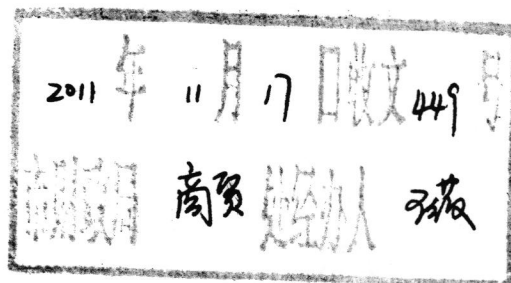 2011年 11月17日收文449号
市财政局 商贸 处经办人